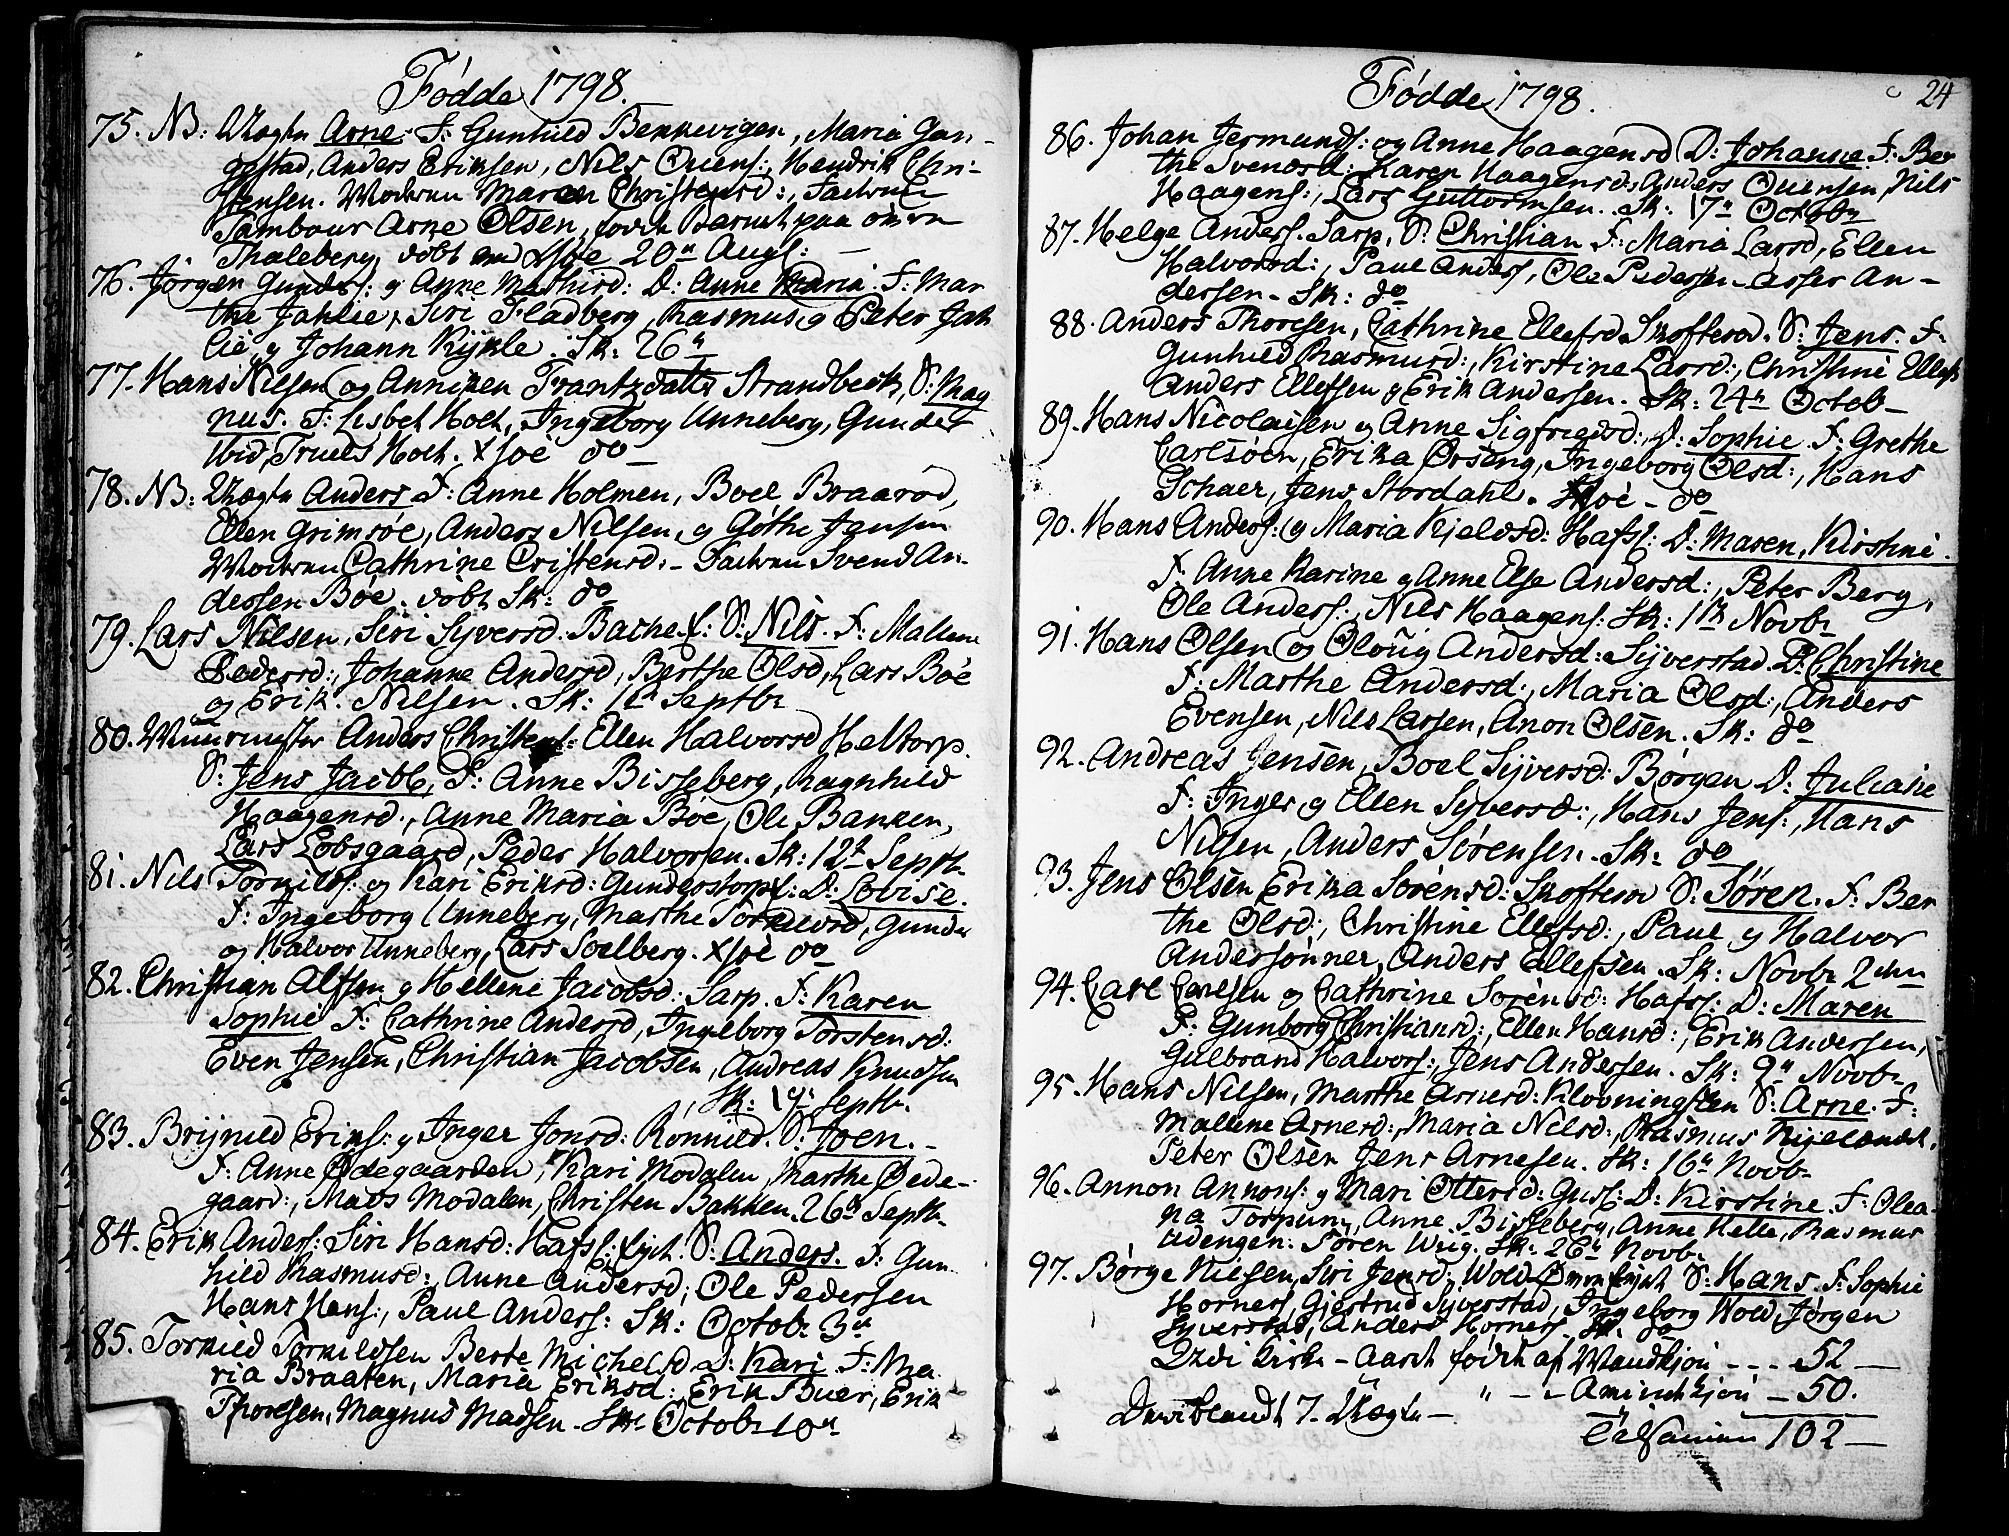 Fødde 1798.
75. NB: Uægte Arne F: Gunhild Bekkevigen, Maria Gan-
gestad, Anders Eriksen, Nils Ouens:, Hendrik Chri-
stensen. Moderen Maren Christensd:, Faderen
Tambour Arne Olsen, født Barnet paa
Thaleberg, døbt Skoe 20de Augs: —
76. Jörgen Gunders: og Anne Mathisd: D: Anne Maria. F: Mar
the Jahlie, Siri Fladberg, Rasmus og Peter Jah
lie og Johann Kykle. Sk: 26de
77. Hans Nilsen og Anniken Frantzdatter Strandbeck, S: Mag
nus. F: Lisbet Holt, Ingeborg Unneberg, Gunder
ibid, Truels Holt. Skoe do —
78. NB: Uægte Anders F: Anne Holmen, Boel Braarød,
Ellen Grimsøe, Anders Nilsen, og Gøthe Jensen
Moderen Cathrine Cristensd: – Faderen Svend An-
dersen Bøe. døbt Sk: do
79. Lars Nilsen, Siri Syversd. Bache S: Nils. F: Mallene
Pedersd:, Johanne Andersd, Berthe Olsd, Lars Bøe
og Erik Nilsen. Sk: Septbr
80. Muurmester Anders Christens: Ellen Halvorsd Heltorp.
S: Jens Jacob, F: Anne Bisseberg, Ragnhild
Haagensd:, Anne Maria Bøe, Ole Banken,
Lars Lobsgaard, Peder Halvorsen. Sk: 12te Septb.
81. Nils Torkilds: og Kari Eriksd: Gunderstorp: D: Lovise.
F: Ingeborg Unneberg, Marthe Torkildsd, Gunder
og Halvor Unneberg, Lars Soelberg. Skoe do
82. Christian Alfsen og Hellene Jacobsd: Sarp. F: Karen
Sophie F: Cathrine Andersd, Ingeborg Torstensd:
Even Jensen, Christian Jacobsen, Andreas Knudsen
Sk: 19. Septb.
83. Brynild Eriks: og Inger Jonsd: Rönnild. S: Joen. –
F: Anne Ødegaarden, Kari Modalen, Marthe Øede-
gaard:, Mads Modalen, Christen Bakken. 26de Septb.
84. Erik Anders: Siri Hansd: Hafsl: S: Anders. F: Gun
hild Rasmusd:, Anne Andersd, Ole Pedersen
Hans Hens:, Paul Anders: Sk: Octob: 3de
85. Torkild Torkildsen Berte Michelsd D: Kari F: Ma
ria Braaten, Maria Eriksd: Erik Buer, Erik
Thoresen, Magnus Madsen. Sk: Octob 10de
Fødde 1798.
24
86. Johan Jermunds: og Anne Haagensd D: Johanne F: Ber
the Svendsd: Karen Haagensd: Anders Ouensen, Nils
Haagens:, Lars Guttormsen. Sk: 17de Octobr
87. Helge Anders. Sarp, S: Christian F: Maria Larsd, Ellen
Halvorsd:, Paul Anders, Ole Pedersen Asser An-
dersen – Sk: do
88. Anders Thoresen, Cathrine Ellefsd Skofterød. S: Jens. F:
Gunhild Rasmusd:, Kirstine Larsd:, Christine Ellefs
Anders Ellefsen og Erik Andersen. Sk: 24de Octob –
89. Hans Nicolaisen og Anne Sigfriedsd:, D: Sophie F: Grethe
Carlsöen, Erika Ørseng, Ingeborg Olsd:, Hans
Schaer, Jens Stordahl. Skoe – do
90. Hans Anders: og Maria Kjeldsd: Hafsl: D: Maren, Kirstine.
F: Anne Karine og Anne Else Andersd:, Peter Berg,
Ole Anders:, Nils Haagens: Sk: 1te Novbr
91. Hans Olsen og Oloug Andersd: Syverstad D: Christine
F: Marthe Andersd:, Maria Olsd:, Anders
Evensen, Nils Larsen, Anon Olsen. Sk: do
92. Andreas Jensen, Boel Syversd: Børgen D: Juliane
F: Inger og Ellen Syversd:, Hans Jens:, Hans
Nilsen, Anders Sörensen. Sk: do
93. Jens Olsen Erika Sörensd: Skofterød S: Sören. F: Ber
the Olsd:, Christine Ellefsd:, Paul og Halvor
Andersönner, Anders Ellefsen. Sk: Novbr 2den
94. Carl Carlsen og Cathrine Sörensd: Hafsl: D: Maren
F: Gunborg Christiansd:, Ellen Hansd:, Erik Andersen,
Gulbrand Halvors:, Jens Andersen. Sk: 9de Novbr
95. Hans Nilsen, Marthe Arnesd: Klovningsten S: Arne. F:
Mallene Arnesd:, Maria Nilsd:, Rasmus
Peter Olsen Jens Arnesen. Sk: 16de Novb.
96. Annon Annons: og Mari Ottersd: D: Kirstine. F: Olea-
na Torpum, Anne Bisseberg, Anne Helle, Rasmus
Udengen. Sören Wiig. Sk: 26de Novb.
97. Børge Nielsen, Siri Jensd. Wold S: Hans. F: Sophie
Horness, Gjertrud Syverstad, Ingeborg Wold, Jørgen
Syverstad, Anders Horness Sk. do
I dette Kirke-Aaret født af Mandkjön - - - 52 —
Deriblandt 7. Uægte — " – – Qvindekjön – 50.
Tilsammen 102 —